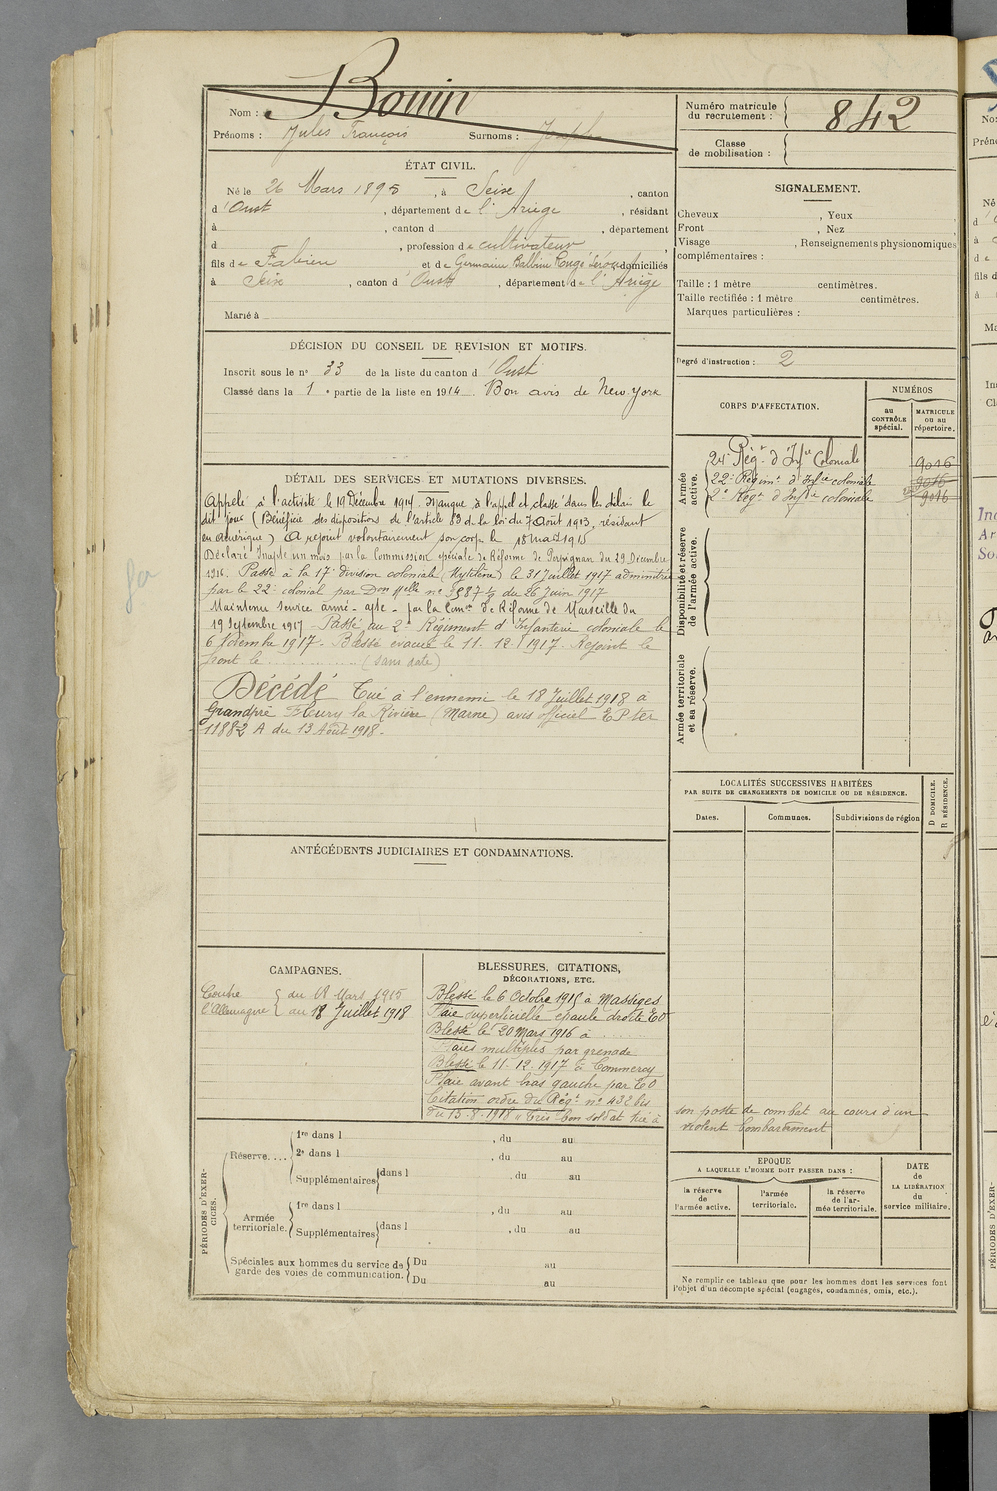 Bouin
Nom :
Prénoms : Jules François Surnoms : Joseph
Numéro matricule du recrutement : 842
Classe de mobilisation :
ÉTAT CIVIL.
Né le 26 Mars 1895, à Seix, canton
d'Oust, département de l'Ariège, résidant
à , canton d , département
d , profession de cultivateur
fils de Fabien et de Germaine Balbine Rougé domiciliés
à Seix, canton d'Oust, département de l'Ariège
Marié à
SIGNALEMENT.
Cheveux , Yeux
Front , Nez
Visage , Renseignements physionomiques
complémentaires :
Taille : 1 mètre centimètres.
Taille rectifiée : 1 mètre centimètres.
Marques particulières :
DÉCISION DU CONSEIL DE REVISION ET MOTIFS.
Inscrit sous le n° 33 de la liste du canton d'Oust
Classé dans la 1e partie de la liste en 1914. Bon avis de New-York
Degré d'instruction : 2
CORPS D'AFFECTATION.
NUMÉROS
au CONTRÔLE spécial.
MATRICULE ou au répertoire.
Armée active.
24e Régt d'Infie Coloniale 9016
22e Régimt d'Infie coloniale 9016
2e Régt d'Infie coloniale 9016
Disponibilité et réserve de l'armée active.
Armée territoriale et sa réserve.
DÉTAIL DES SERVICES ET MUTATIONS DIVERSES.
Appelé à l'activité le 19 Décembre 1914. Manque à l'appel et classé dans les délais le
dit jour (Bénéficie des dispositions de l'article 83 de la loi du 7 Août 1913, résidant
en Amérique) A rejoint volontairement son corps le 18 mars 1915
Déclaré Inapte un mois par la Commission spéciale de Réforme de Perpignan du 29 Décembre
1916. Passé à la 17e division coloniale (Mytilène) le 31 Juillet 1917 administré
par le 22e colonial par Don Melle n° 3987 1/9 du 26 Juin 1917
Maintenu service armé - apte - par la Comon de Réforme de Marseille du
19 Septembre 1917 - Passé au 2e Régiment d'Infanterie coloniale le
6 Novembre 1917 - Blessé évacué le 11.12.1917. Rejoint le
front le ............... (sans date)
Décédé Tué à l'ennemi le 18 Juillet 1918 à
Grandpré Fleury la Rivière (Marne) avis officiel EP ter
11882 A du 13 Août 1918.
LOCALITÉS SUCCESSIVES HABITÉES
PAR SUITE DE CHANGEMENTS DE DOMICILE OU DE RÉSIDENCE.
Dates. Communes. Subdivisions de région
D DOMICILE.
R RÉSIDENCE.
ANTÉCÉDENTS JUDICIAIRES ET CONDAMNATIONS.
CAMPAGNES.
Contre l'Allemagne
du 18 Mars 1915
au 18 Juillet 1918
BLESSURES, CITATIONS,
DÉCORATIONS, ETC.
Blessé le 6 Octobre 1915 à Massiges
Plaie superficielle épaule droite EO
Blessé le 20 Mars 1916 à ......
Plaies multiples par grenade
Blessé le 11-12-1917 à Commercy
Plaie avant bras gauche par EO
Citation ordre du Régt n° 432 bis
du 15-8-1918 "Très bon soldat tué à
son poste de combat au cours d'un
violent bombardement
PÉRIODES D'EXERCICES.
Réserve....
1re dans l , du au
2e dans l , du au
Supplémentaires dans l , du au
Armée territoriale.
1re dans l , du au
Supplémentaires dans l , du au
Spéciales aux hommes du service de garde des voies de communication.
Du au
Du au
EPOQUE
A LAQUELLE L'HOMME DOIT PASSER DANS :
la réserve de l'armée active.
l'armée territoriale.
la réserve de l'armée territoriale.
DATE de LA LIBÉRATION du service militaire.
Ne remplir ce tableau que pour les hommes dont les services font
l'objet d'un décompte spécial (engagés, condamnés, omis, etc.).